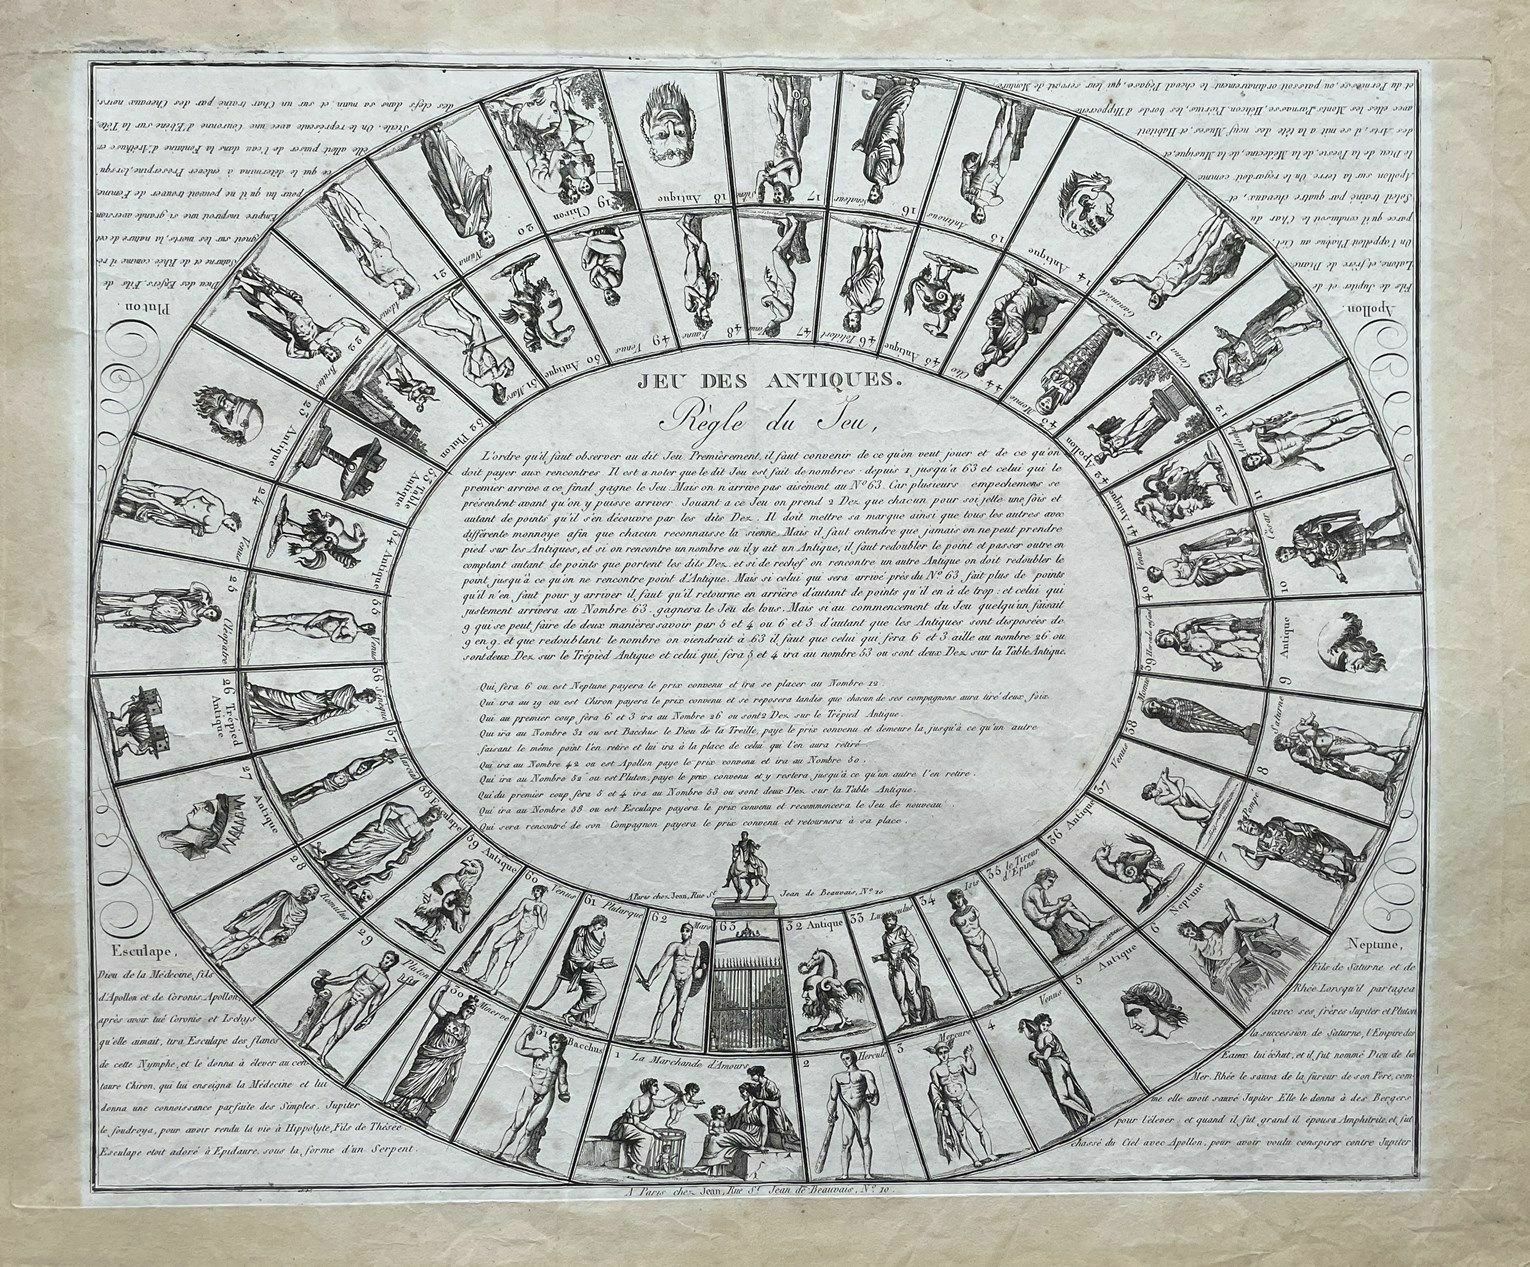 JEU DES ANTIQUES.
Règle du Jeu,
L'ordre qu'il faut observer au dit Jeu Premièrement, il faut convenir de ce qu'on veut jouer et de ce qu'on
doit payer aux rencontres. Il est a noter que le dit Jeu est fait de nombres depuis 1 jusqu'a 63 et celui qui le
premier arrive a ce final gagne le Jeu. Mais on n'arrive pas aisément au No 63. Car plusieurs empechemens se
présentent avant qu'on y puisse arriver. Jouant a ce Jeu on prend 2 Dez que chacun pour soi jette une fois et
autant de points qu'il s'en découvre par les dits Dez. Il doit mettre sa marque ainsi que tous les autres avec
différente monnoye afin que chacun reconnaisse la sienne. Mais il faut entendre que jamais on ne peut prendre
pied sur les Antiques, et si on rencontre un nombre ou il y ait un Antique, il faut redoubler le point et passer outre en
comptant autant de points que portent les dits Dez. et si de rechef on rencontre un autre Antique on doit redoubler le
point jusqu'à ce qu'on ne rencontre point d'Antique. Mais si celui qui sera arrivé près du No 63 fait plus de points
qu'il n'en faut pour y arriver il faut qu'il retourne en arrière d'autant de points qu'il en à de trop. et celui qui
justement arrivera au Nombre 63. gagnera le Jeu de tous. Mais si au commencement du Jeu quelqu'un faisait
9 qui se peut faire de deux manières savoir par 5 et 4 ou 6 et 3 d'autant que les Antiques sont disposées de
9 en 9. et que redoublant le nombre on viendrait à 63 il faut que celui qui fera 6 et 3 aille au nombre 26 ou
sont deux Dez sur le Trépied Antique et celui qui fera 5 et 4 ira au nombre 53 ou sont deux Dez sur la Table Antique.
Qui fera 6 ou est Neptune payera le prix convenu et ira se placer au Nombre 12.
Qui ira au 19 ou est Chiron payera le prix convenu et se reposera tandis que chacun de ses compagnons aura tiré deux fois.
Qui au premier coup fera 6 et 3 ira au Nombre 26 ou sont 2 Dez sur le Trépied Antique.
Qui ira au Nombre 31 ou est Bacchus le Dieu de la Treille, paye le prix convenu et demeure la jusqu'à ce qu'un autre
faisant le même point l'en retire et lui ira à la place de celui qui l'en aura retiré
Qui ira au Nombre 42 ou est Apollon paye le prix convenu et ira au Nombre 30.
Qui ira au Nombre 52 ou est Pluton, paye le prix convenu et y restera jusqu'à ce qu'un autre l'en retire.
Qui du premier coup fera 5 et 4 ira au Nombre 53 ou sont deux Dez sur la Table Antique.
Qui ira au Nombre 58 ou est Esculape payera le prix convenu et recommencera le Jeu de nouveau
Qui sera rencontré de son Compagnon payera le prix convenu et retournera à sa place.
A Paris chez Jean, Rue St Jean de Beauvais, No 10
1 La Marchande d'Amours
2 Hercule
3 Mercure
4 Venus
5 Antique
6 Neptune
7 Pompé
8 Saturne
9 Antique
10 César
11
12
13
14 Antique
15 Antinous
16 Senateur
17
18 Antique
19 Chiron
20 Numa
21
22 Brutus
23 Antique
24 Venus
25
26 Trépied Antique
27 Antique
28 Romulus
29 Pluton
30 Minerve
31 Bacchus
32 Antique
33
34 Isis
35 le Tireur d'Epine
36 Antique
37 Venus
38 Momie
39
40 Venus
41 Antique
42 Apollon
43 Momie
44 Clio
45 Antique
46
47 Venus
48 Faune
49 Venus
50 Antique
51 Mars
52 Pluton
53 Table Antique
54 Antique
55 Venus
56
57
58 Esculape
59 Antique
60 Venus
61 Plutarque
62 Mars
63
Pluton
Dieu des Enfers Fils de
Saturne et de Rhée comme il ré
gnoit sur les morts, la nature de cet
Empire inspira une si grande aversion
pour lui qu'il ne pouvait trouver de Femme,
ce qui le détermina à enlever Proserpine, lorsqu
elle alloit puiser de l'eau dans la Fontaine d'Aréthuse en
Sicile. On le représente avec une Couronne d'Ebène sur la Tête,
des clefs dans sa main, et sur un Char trainé par des Chevaux noirs.
Apollon
Fils de Jupiter et de
Latone, et frère de Diane
On l'appelloit Phœbus au Ciel
parce qu'il conduisoit le Char du
Soleil trainé par quatre chevaux, et
Apollon sur la terre On le regardoit comme
le Dieu de la Poésie, de la Médecine, de la Musique, et
des Arts, il se mit a la tête des neuf Muses, et Habitoit
avec elles les Monts Parnasse, Hélicon, Piérius, les bords d'Hippocrène
et du Permesse, ou paissoit ordinairement le cheval Pégase, qui leur servoit de Monture
Esculape,
Dieu de la Médecine, fils
d'Apollon et de Coronis. Apollon,
après avoir tué Coronis et Ischys
qu'elle aimait, tira Esculape des flancs
de cette Nymphe, et le donna à élever au cen
taure Chiron, qui lui enseigna la Médecine et lui
donna une connoissance parfaite des Simples. Jupiter
le foudroya, pour avoir rendu la vie à Hippolyte, Fils de Thésée
Esculape etoit adoré à Epidaure, sous la forme d'un Serpent.
Neptune,
Fils de Saturne et de
Rhée Lorsqu'il partagea
avec ses frères Jupiter et Pluton
la succession de Saturne, l'Empire des
Eaux lui échut, et il fut nommé Dieu de la
Mer. Rhée le sauva de la fureur de son Père, com
me elle avoit sauvé Jupiter Elle le donna à des Bergers
pour l'élever et quand il fut grand il épousa Amphitrite, et fut
chassé du Ciel avec Apollon, pour avoir voulu conspirer contre Jupiter
A Paris chez Jean, Rue St Jean de Beauvais, No 10.